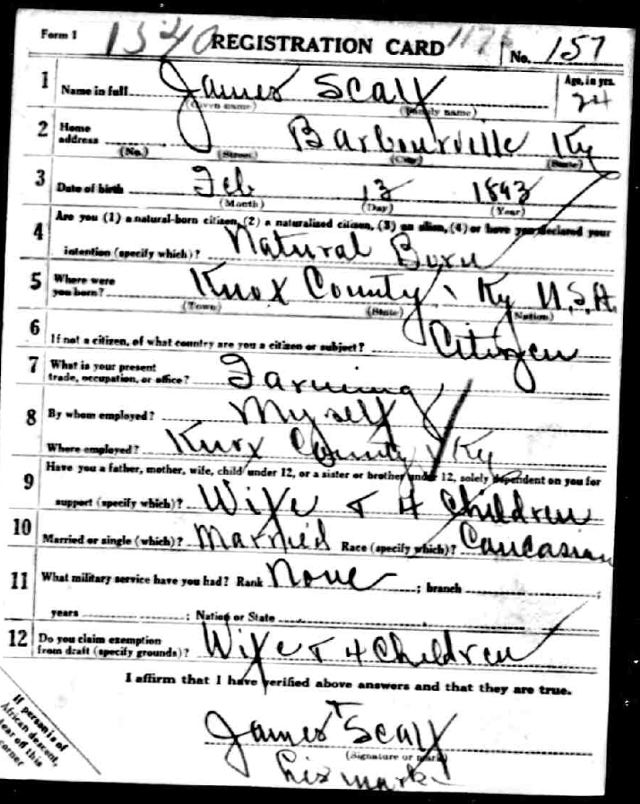 Form 1 1540 REGISTRATION CARD 1176 No. 157
1 Name in full James Scalf Age, in yrs. 24
(Given name) (Family name)
2 Home address Barbourville Ky
(No.) (Street) (City) (State)
3 Date of birth Feb 13 1893
(Month) (Day) (Year)
4 Are you (1) a natural-born citizen, (2) a naturalized citizen, (3) an alien, (4) or have you declared your
intention (specify which)? Natural Born
5 Where were you born? Knox County Ky U.S.A.
(Town) (State) (Nation)
6 If not a citizen, of what country are you a citizen or subject? Citizen
7 What is your present trade, occupation, or office? Farming
8 By whom employed? Myself
Where employed? Knox County Ky
9 Have you a father, mother, wife, child under 12, or a sister or brother under 12, solely dependent on you for
support (specify which)? Wife & 4 Children
10 Married or single (which)? Married Race (specify which)? Caucasian
11 What military service have you had? Rank None ; branch ;
years ; Nation or State
12 Do you claim exemption from draft (specify grounds)? Wife & 4 Children
I affirm that I have verified above answers and that they are true.
James Scalf
(Signature or mark)
his mark
If person is of
African descent,
tear off this
corner